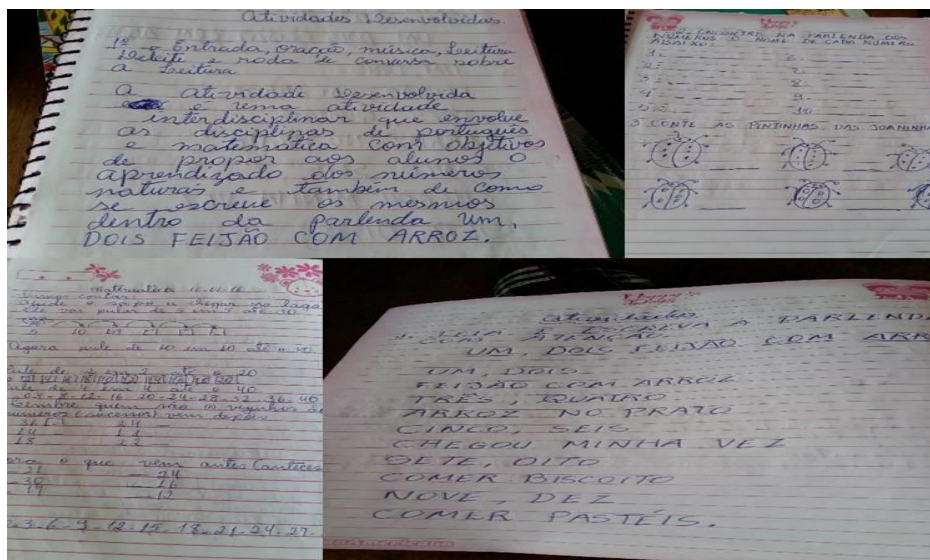 Atividades Desenvolvidas.
1º Entrada, oração, música, Leitura
Deleite e roda de conversa sobre
a Leitura
A atividade desenvolvida
é uma atividade
interdisciplinar que envolve
as disciplinas de português
e matemática com objetivos
de propor aos alunos o
aprendizado dos números
naturas e também de como
se escreve os mesmos
dentro da parlenda um,
DOIS FEIJÃO COM ARROZ.
ENCONTRE NA PARLENDA DOS
NÚMEROS O NOME DE CADA NÚMERO
ABAIXO:
1= 6=
2= 7=
3= 8=
4= 9=
5= 10
3 CONTE AS PINTINHAS DAS JOANINHA
Matemática
contar:
Ajude o sapo a chegar no lago
ele vai pular de 5 em 5 até 30
5 10 15
Agora pule de 10 em 10 até o
Pule de 2 em 2 até o 20
Pule de 4 em 4 até o 40
0-4-8-12-16-20-24-28-32-36-40
quem são os vizinhos
números (sucessor) vem depois
24
18 22
o que vem antes (anteces
21 24
30 16
19 12
3-6-9-12-15-18-21-24-27-
Atividades
* LEIA E ESCREVA A PARLENDA
COM ATENÇÃO
UM, DOIS FEIJÃO COM ARR
UM, DOIS
FEIJÃO COM ARROZ
TRÊS, QUATRO
ARROZ NO PRATO
CINCO, SEIS
CHEGOU MINHA VEZ
SETE, OITO
COMER BISCOITO
NOVE, DEZ
COMER PASTÉIS.